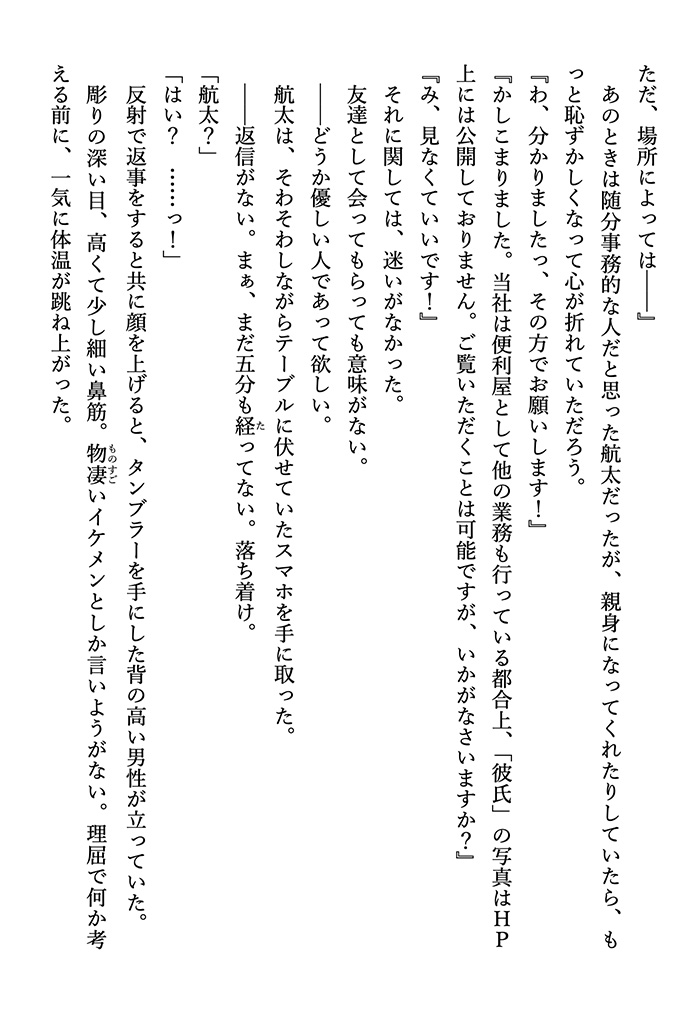 ただ、場所によっては――』
　あのときは随分事務的な人だと思った航太だったが、親身になってくれたりしていたら、も
っと恥ずかしくなって心が折れていただろう。
『わ、分かりましたっ、その方でお願いします！』
『かしこまりました。当社は便利屋として他の業務も行っている都合上、「彼氏」の写真はＨＰ
上には公開しておりません。ご覧いただくことは可能ですが、いかがなさいますか？』
『み、見なくていいです！』
　それに関しては、迷いがなかった。
　友達として会ってもらっても意味がない。
　――どうか優しい人であって欲しい。
　航太は、そわそわしながらテーブルに伏せていたスマホを手に取った。
　――返信がない。まぁ、まだ五分も経ってない。落ち着け。
た
「航太？」
「はい？　……っ！」
　反射で返事をすると共に顔を上げると、タンブラーを手にした背の高い男性が立っていた。
　彫りの深い目、高くて少し細い鼻筋。物凄いイケメンとしか言いようがない。理屈で何か考
ものすご
える前に、一気に体温が跳ね上がった。